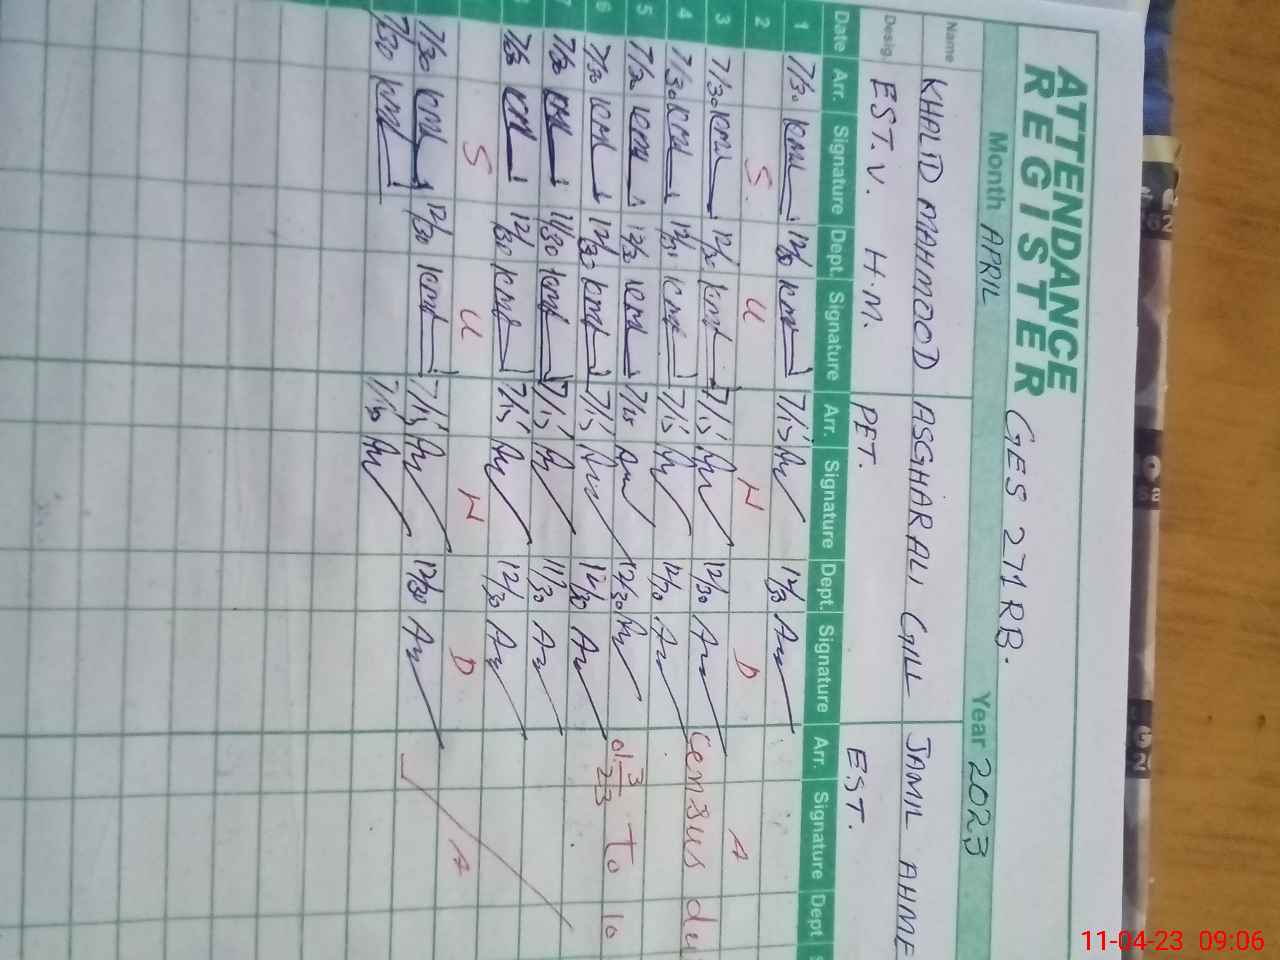 ATTENDANCE
REGISTER
GES 271 RB.
Month APRIL Year 2023
Name KHALID MAHMOOD ASGHAR ALI GILL JAMIL AHME
Desig. EST. V. H.M. PET. EST.
Date Arr. Signature Dept. Signature Arr. Signature Dept. Signature Arr. Signature Dept S
1 7/30 KML 12/30 KML 7/15 12/30
2 S U N D A
3 7/30 KML 12/30 KML 7/15 12/30 Census du
4 7/30 KML 12/30 KML 7/15 12/30
5 7/30 KML 12/30 KML 7/15 12/30
6 7/30 KML 12/30 KML 7/15 12/30 To 10
7 7/30 KML 11/30 KML 7/15 11/30
7/30 KML 12/30 KML 7/15 12/30
S U N D A
7/30 KML 12/30 KML 7/15 12/30
7/30 KML 7/15
11-04-23 09:06